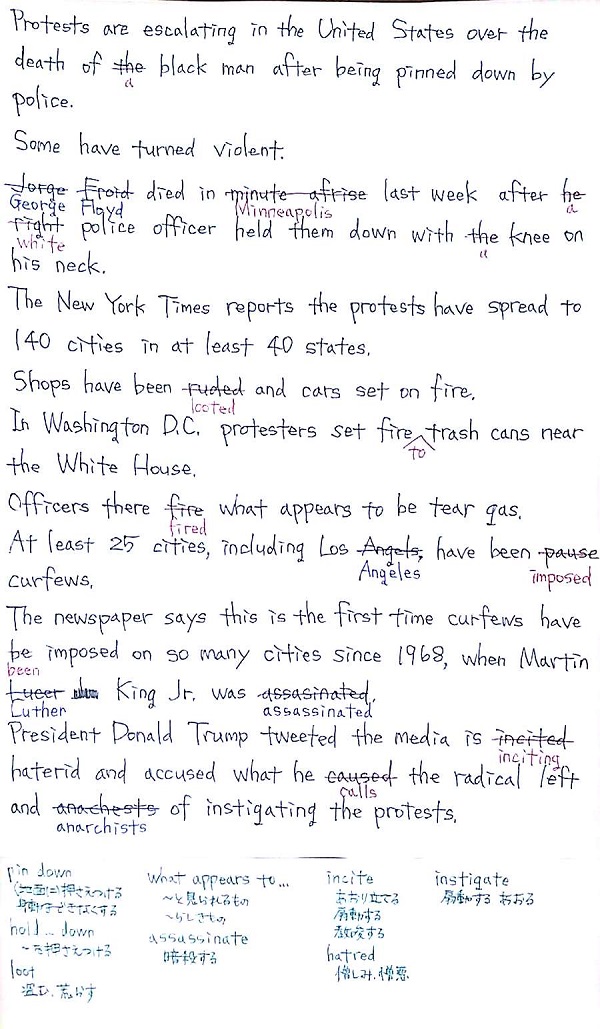 Protests are escalating in the United States over the
death of the black man after being pinned down by
a
police.
Some have turned violent.
Jorge Froid died in minute afrise last week after he
George Floyd Minneapolis a
right police officer held them down with the knee on
white a
his neck.
The New York Times reports the protests have spread to
140 cities in at least 40 states.
Shops have been ruded and cars set on fire.
looted
In Washington D.C. protesters set fire trash cans near
to
the White House.
Officers there fire what appears to be tear gas.
fired
At least 25 cities, including Los Angels, have been pause
Angeles imposed
curfews.
The newspaper says this is the first time curfews have
be imposed on so many cities since 1968, when Martin
been
Lucer King Jr. was assasinated.
Luther assassinated
President Donald Trump tweeted the media is incited
inciting
haterid and accused what he caused the radical left
calls
and anachests of instigating the protests.
anarchists
pin down
押さえつける
身動きできなくする
hold … down
~を押さえつける
loot
盗む、荒らす
what appears to…
~と見られるもの
~らしきもの
assassinate
暗殺する
incite
あおり立てる
扇動する
教唆する
hatred
憎しみ、憎悪
instigate
扇動する あおる